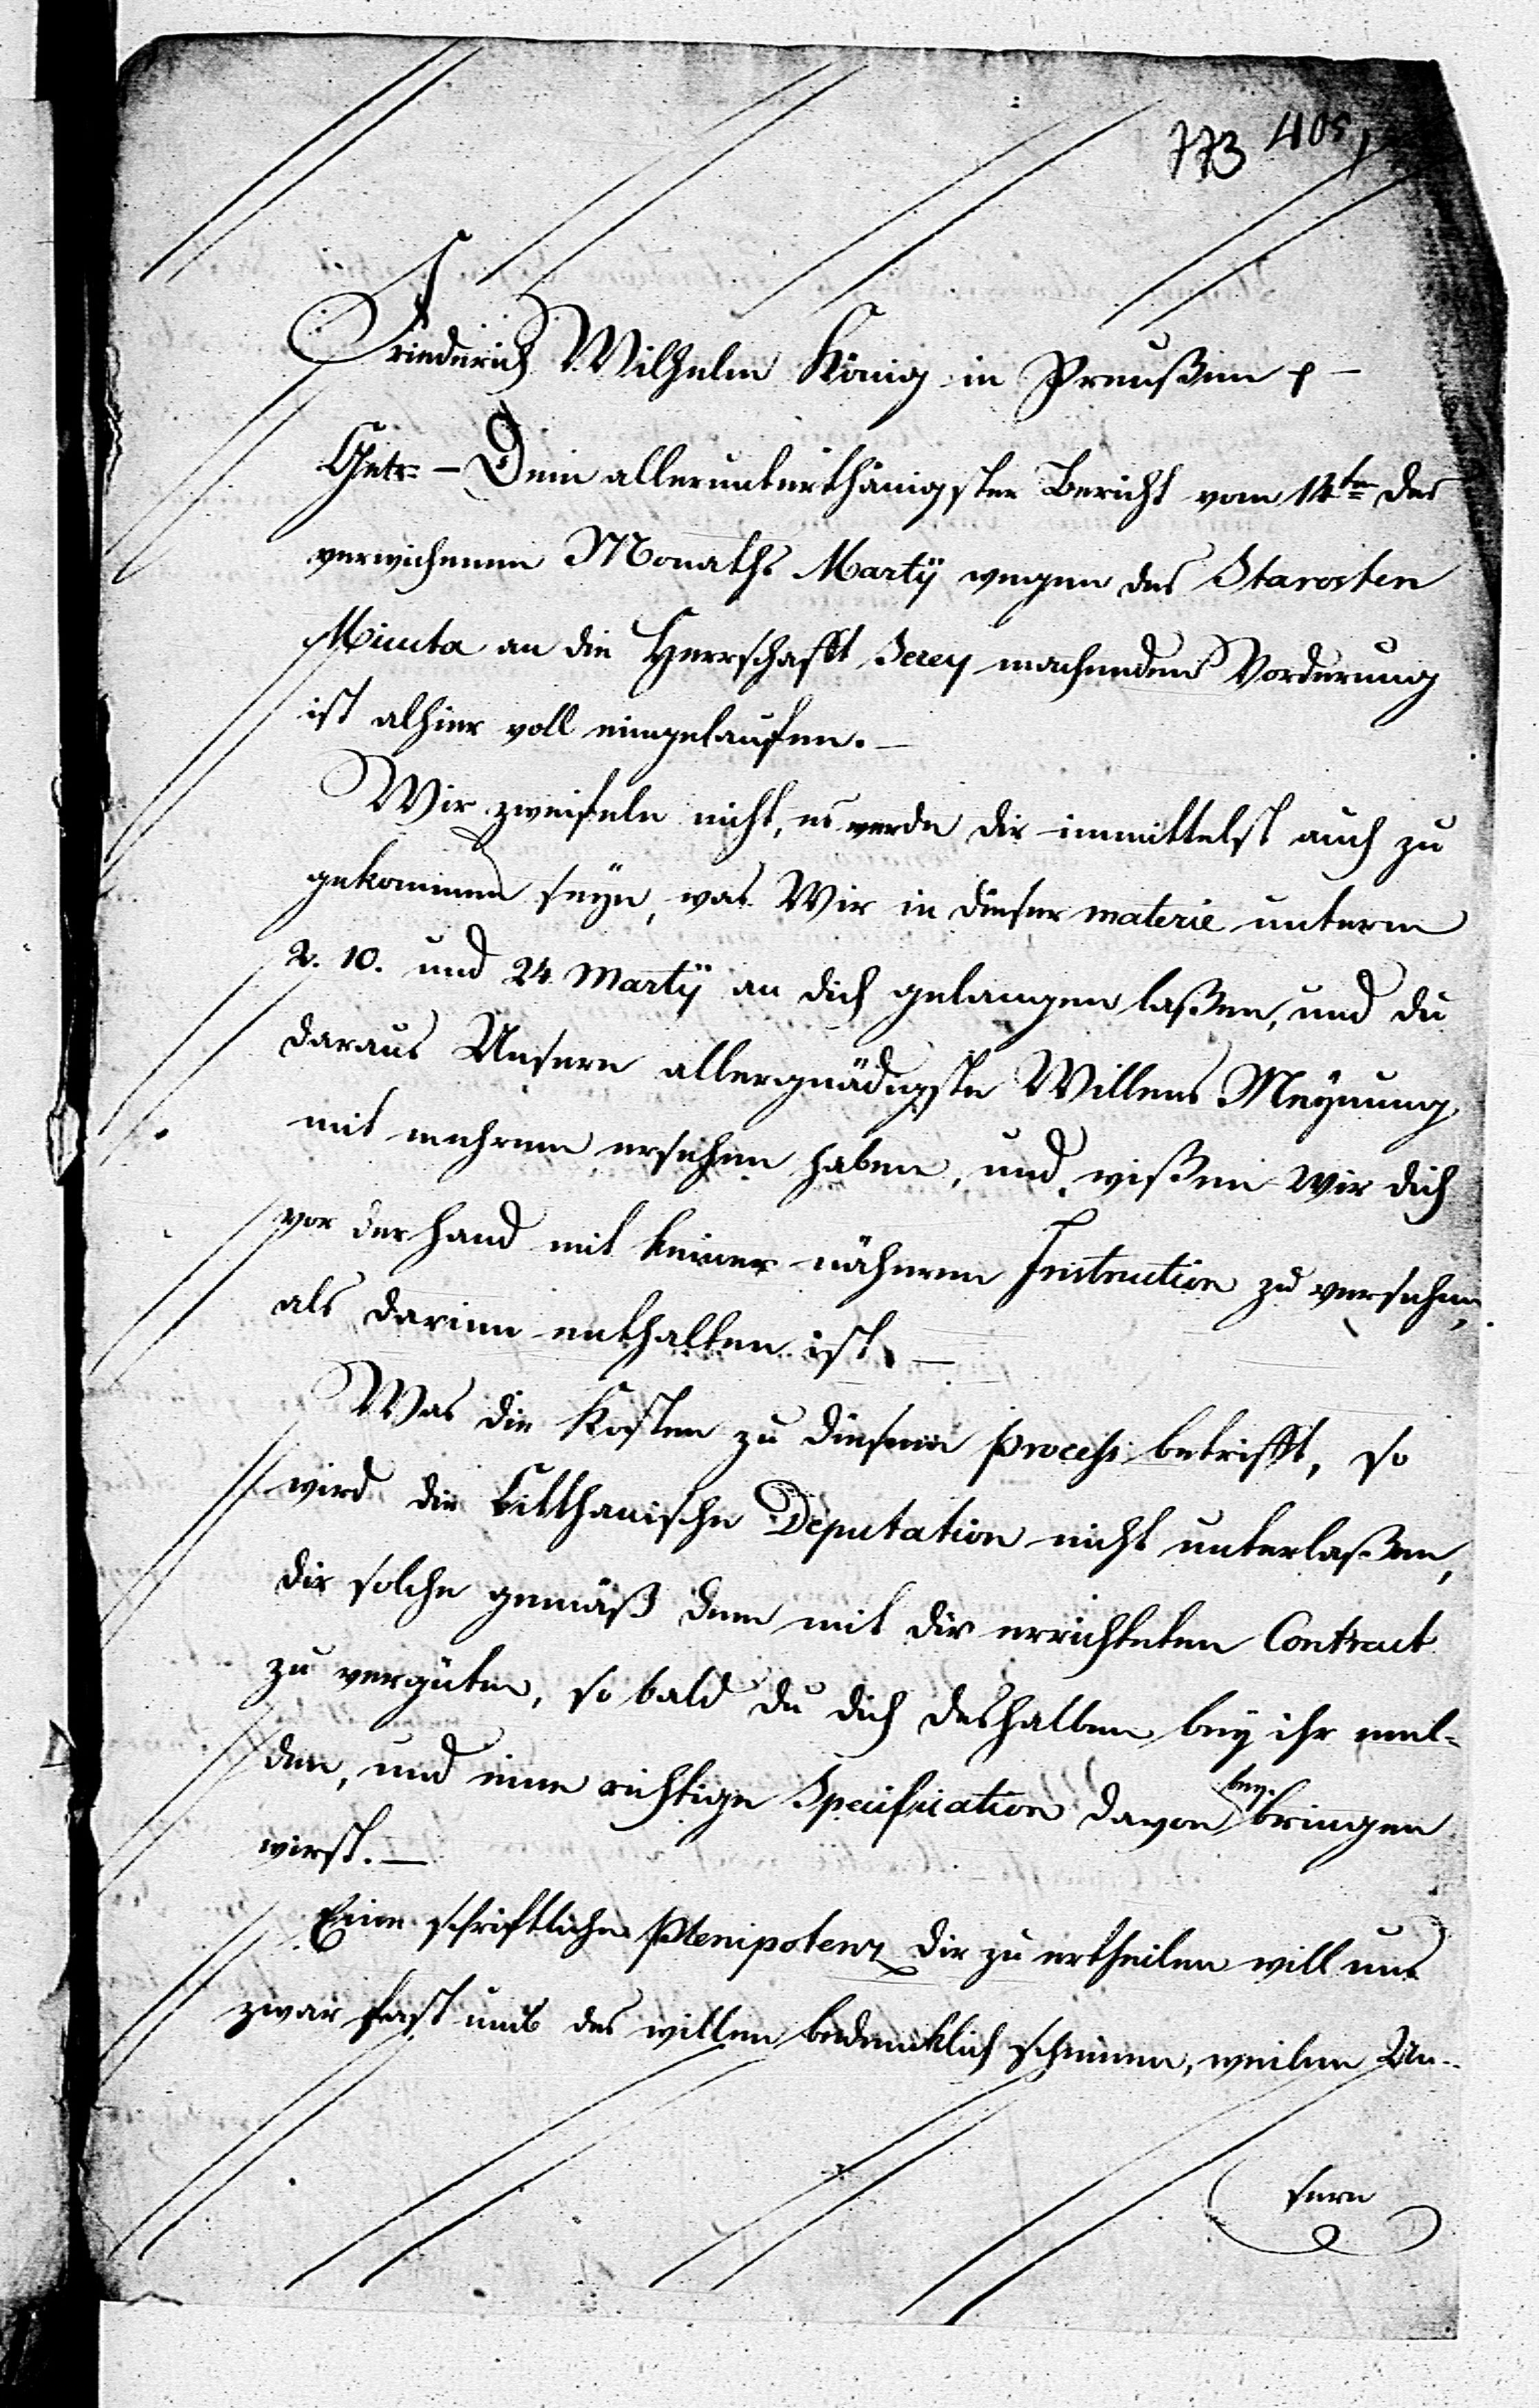 773 405
Friederich Wilhelm König in Preußen p –
Getr= – Dein allerunterthänigster Bericht vom 14ten des
verwichenen Monaths Martÿ wegen des Starosten
Micuta an die Herrschafft Serey machenden Vorderung
ist alhier woll eingelaufen. –
Wir zweifeln nicht, es werde dir immittelst auch zu
gekommen seyn, was Wir in dieser materie unterm
2. 10. und 24 Martÿ an dich gelangen laßen, und du
daraus Unsern allergnädigste Willens Meÿnung
mit mehrem ersehen haben, und wißen Wir dich
vor der Hand mit keiner näheren Instruction zu versehen,
als darinn enthalten ist. –
Was die Kosten zu diesem process betrifft, so
wird die Litthauische Deputation nicht unterlaßen,
dir solche gemäß dem mit dir errichteten Contract
zu vergüten, so bald du dich deshalben bey ihr mel-
den, und eine richtige Specification davon bey-bringen
wirst. –
Eine schriftliche Plenipotenz dir zu ertheilen will uns
zwar fast umb des willen bedencklich scheinen, weilen Un-
sern